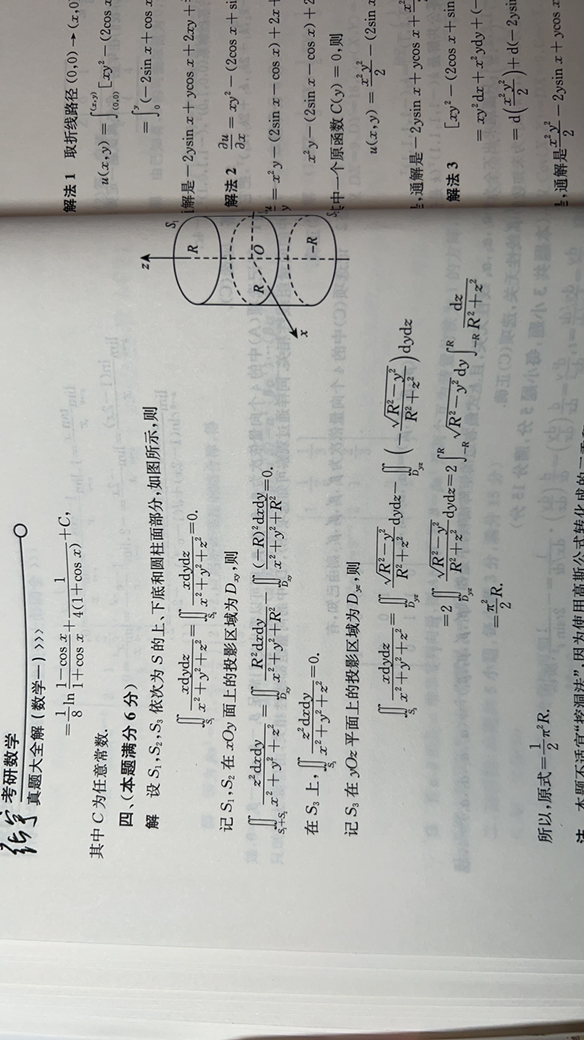 张宇考研数学
真题大全解(数学一)>>>
=\frac{1}{8}\ln\frac{1-\cos x}{1+\cos x}+\frac{1}{4(1+\cos x)}+C,
其中 C 为任意常数.
四、(本题满分 6 分)
解 设 S₁,S₂,S₃ 依次为 S 的上、下底和圆柱面部分,如图所示,则
\iint_{S_1}\frac{x dydz}{x^2+y^2+z^2}=\iint_{S_2}\frac{x dydz}{x^2+y^2+z^2}=0.
记 S₁,S₂ 在 xOy 面上的投影区域为 D_{xy},则
\iint_{S_1+S_2}\frac{z^2 dxdy}{x^2+y^2+z^2}=\iint_{D_{xy}}\frac{R^2 dxdy}{x^2+y^2+R^2}-\iint_{D_{xy}}\frac{(-R)^2 dxdy}{x^2+y^2+R^2}=0.
在 S₃ 上,\iint_{S_3}\frac{z^2 dxdy}{x^2+y^2+z^2}=0.
记 S₃ 在 yOz 平面上的投影区域为 D_{yz},则
\iint_{S_3}\frac{x dydz}{x^2+y^2+z^2}=\iint_{D_{yz}}\frac{\sqrt{R^2-y^2}}{R^2+z^2}dydz-\iint_{D_{yz}}\left(-\frac{\sqrt{R^2-y^2}}{R^2+z^2}\right)dydz
=2\iint_{D_{yz}}\frac{\sqrt{R^2-y^2}}{R^2+z^2}dydz=2\int_{-R}^{R}\sqrt{R^2-y^2}dy\int_{-R}^{R}\frac{dz}{R^2+z^2}
=\frac{\pi^2}{2}R.
所以,原式=\frac{1}{2}\pi^2R.
注 本题不适宜“挖洞法”,因为使用高斯公式转化成的三重
z
S₁
R
O
R
-R
x
解法 1 取折线路径 (0,0)→(x,0)
u(x,y)=\int_{(0,0)}^{(x,y)}[xy^2-(2\cos x
=\int_0^y(-2\sin x+\cos x
解是-2y\sin x+y\cos x+2xy+
解法 2 \frac{\partial u}{\partial x}=xy^2-(2\cos x+si
=x^2y-(2\sin x-\cos x)+2x+
x^2y-(2\sin x-\cos x)+2
中一个原函数 C(y)=0,则
u(x,y)=\frac{x^2y^2}{2}-(2\sin x
,通解是-2y\sin x+y\cos x+
解法 3 [xy^2-(2\cos x+sin
=xy^2dx+x^2ydy+(-
=d\left(\frac{x^2y^2}{2}\right)+d(-2ysin
,通解是\frac{x^2y^2}{2}-2y\sin x+y\cos x